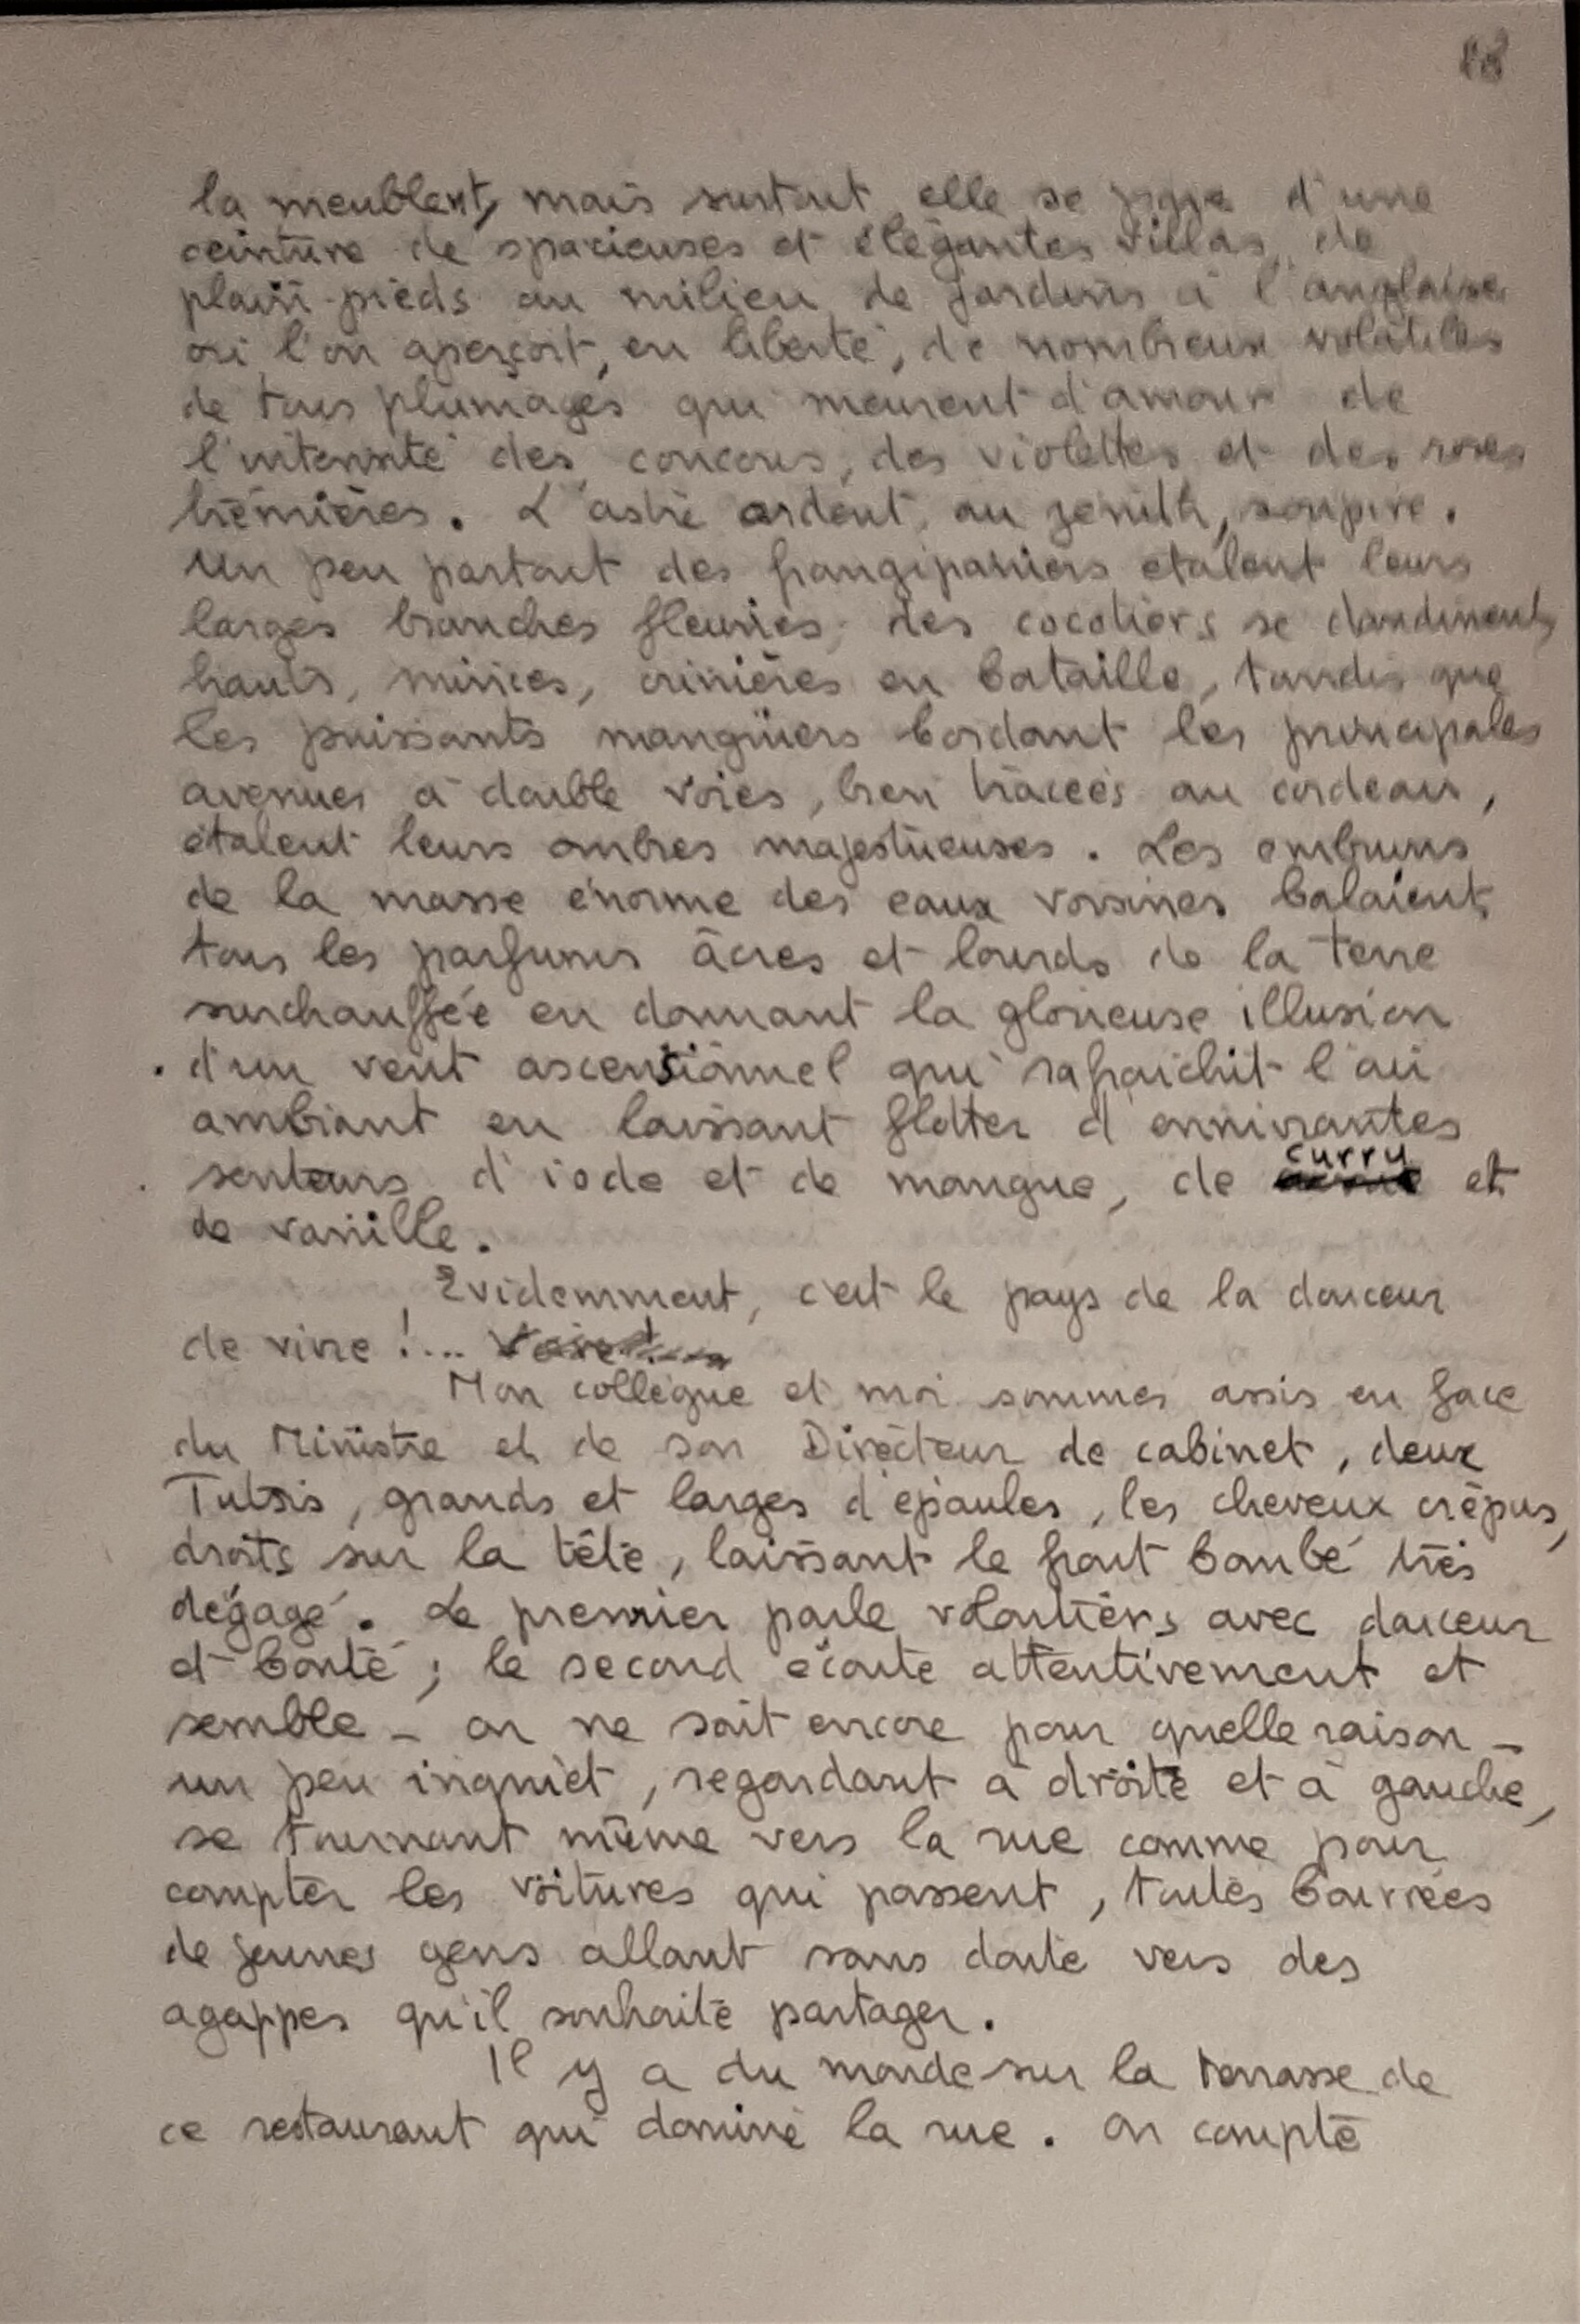 18
la meublent, mais surtout elle se pique d'une
ceinture de spacieuses et élégantes villas de
plain-pieds au milieu de jardins à l'anglaise
où l'on aperçoit, en liberté, de nombreux volatiles
de tous plumages qui meurent d'amour de
l'intensité des coucous, des violettes et des roses
trémières. L'astre ardent, au zénith, soupire.
Un peu partout des frangipaniers étalent leurs
larges branches fleuries, des cocotiers se dandinent,
hauts, minces, crinières en bataille, tandis que
les puissants manguiers bordant les principales
avenues à double voies, bien tracées au cordeau,
étalent leurs ombres majestueuses. Les embruns
de la masse énorme des eaux voisines balaient
tous les parfums âcres et lourds de la terre
surchauffée en donnant la glorieuse illusion
d'un vent ascensionnel qui rafraichit l'air
ambiant en laissant flotter d'ennivrantes
senteurs d'iode et de mangue, de curry et
de vanille.
Evidemment, c'est le pays de la douceur
de vivre !...
Mon collègue et moi sommes assis en face
du Ministre et de son Directeur de cabinet, deux
Tutsis, grands et larges d'épaules, les cheveux crépus,
droits sur la tête, laissant le front bombé très
dégagé. Le premier parle volontiers avec douceur
et bonté ; le second écoute attentivement et
semble _ on ne sait encore pour quelle raison _
un peu inquiet, regardant à droite et à gauche,
se tournant même vers la rue comme pour
compter les voitures qui passent, toutes bourrées
de jeunes gens allant sans doute vers des
agappes qu'il souhaite partager.
Il y a du monde sur la terrasse de
ce restaurant qui domine la rue. On compte